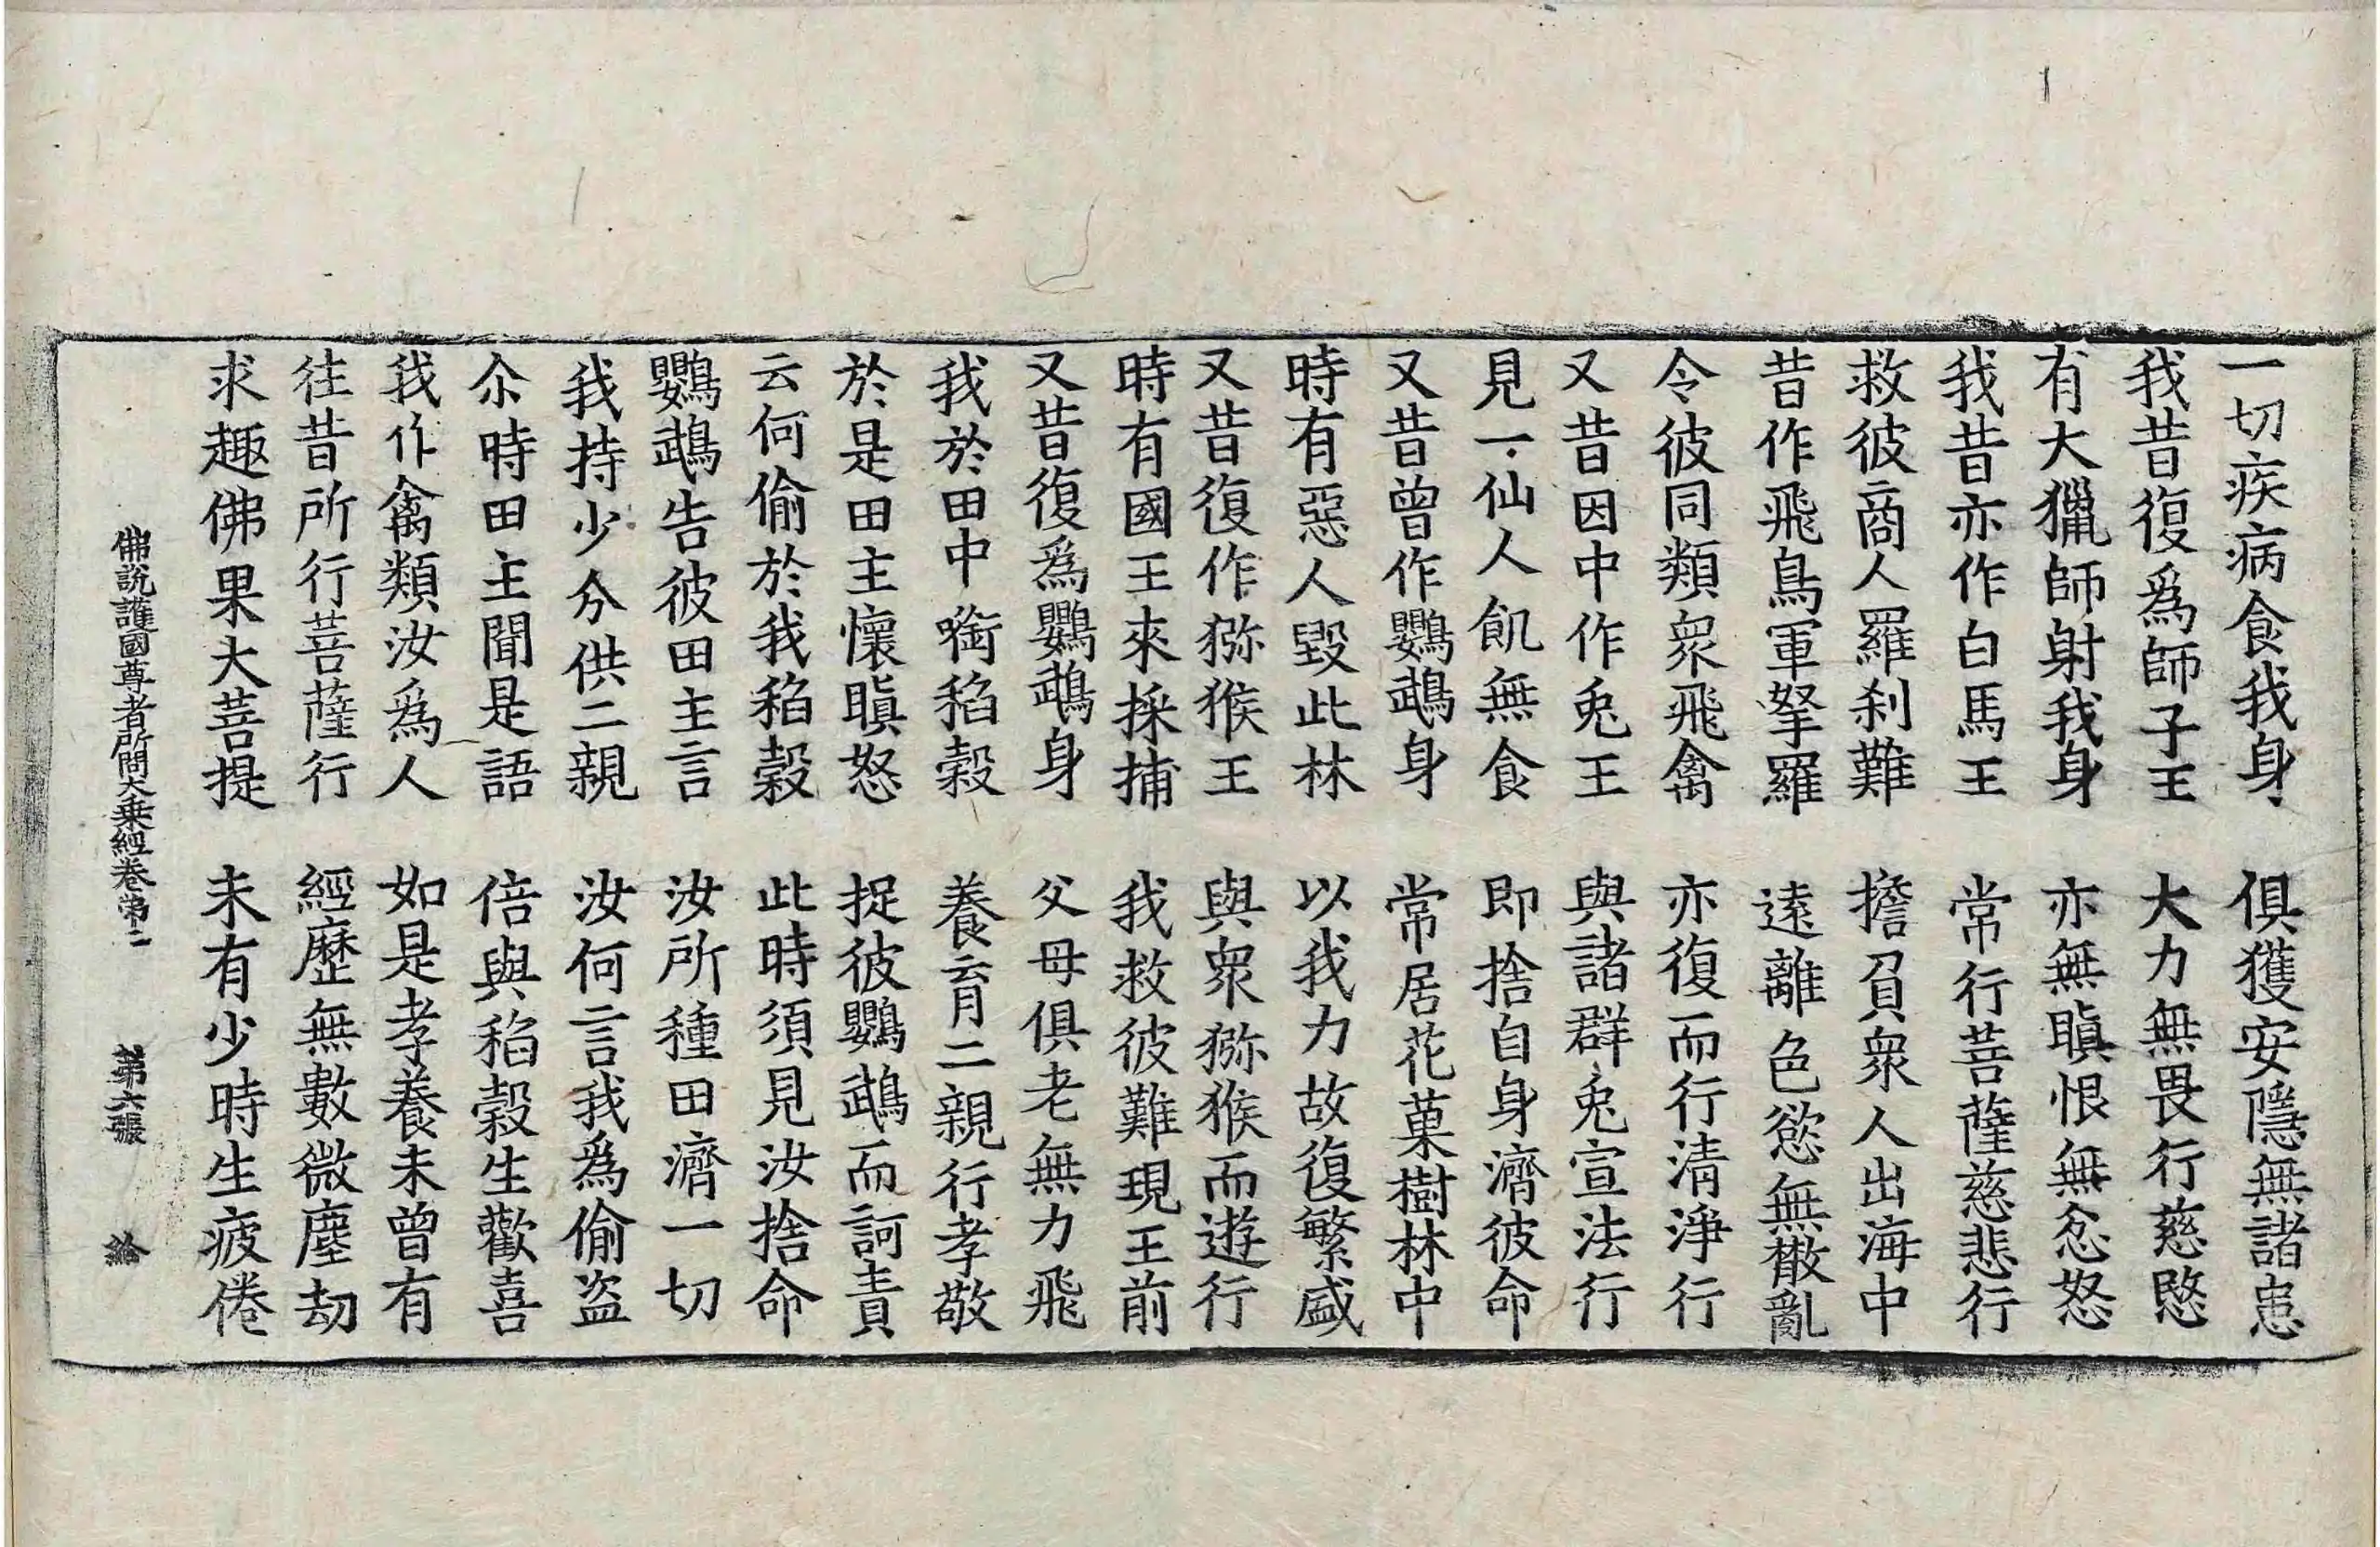 一切疾病食我身　俱獲安隱無諸患
我昔復爲師子王　大力無畏行慈愍
有大獵師射我身　亦無瞋恨無忿怒
我昔亦作白馬王　常行菩薩慈悲行
救彼商人羅刹難　擔負衆人出海中
昔作飛鳥軍拏羅　遠離色慾無散亂
令彼同類衆飛禽　亦復而行清淨行
又昔因中作兎王　與諸群兎宣法行
見一仙人飢無食　即捨自身濟彼命
又昔曾作鸚鵡身　常居花菓樹林中
時有惡人毀此林　以我力故復繁盛
又昔復作猕猴王　與衆猕猴而遊行
時有國王來採捕　我救彼難現王前
又昔復爲鸚鵡身　父母俱老無力飛
我於田中㗖稻穀　養育二親行孝敬
於是田主懷瞋怒　捉彼鸚鵡而訶責
云何偷於我稻穀　此時須見汝捨命
鸚鵡告彼田主言　汝所種田濟一切
我持少分供二親　汝何言我爲偷盗
尒時田主聞是語　倍與稻穀生歡喜
我作禽類汝爲人　如是孝養未曾有
往昔所行菩薩行　經歷無數微塵劫
求趣佛果大菩提　未有少時生疲倦
佛說護國尊者所問大乘經卷第二　第六張